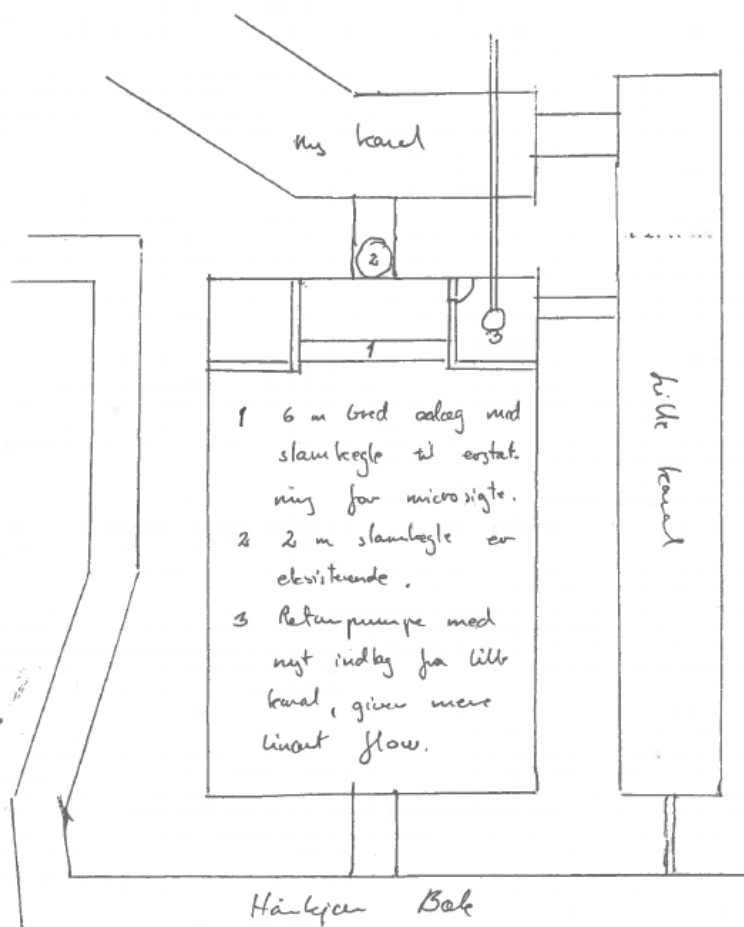 ny kanal
2
3
1
1 6 m bred anlæg med
slamkegle til erstat-
ning for microsigte.
2 2 m slamkegle er
eksisterende.
3 Returpumpe med
nyt indtag fra lille
kanal, giver mere
lineart flow.
lille kanal
Bæk